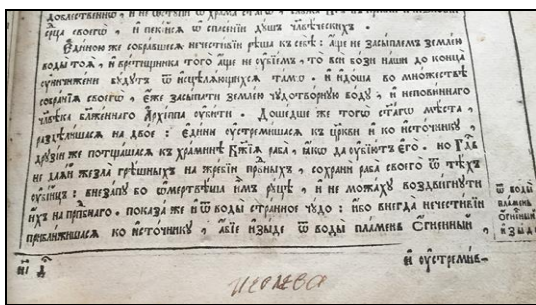 доблественнѡ, и не ѿступи ѿ храма ст҃агѡ,
ср҃дца своегѡ, и пекїйсѧ ѡ спасенїи душъ чл҃вѣческихъ.
Єдиною же собравшесѧ нечестивїи рѣша къ себѣ: а҆ще не засыплемъ землею
воды тоѧ, и врⷮищника того а҆ще не ᲂу҆бїемъ, то вси бози наши до конца
ᲂу҆ничижени будутъ ѿ и҆сцѣлѧющихсѧ тамѡ. и҆ и҆доша во множествѣ
собранїѧ своегѡ, є҆же засыпати землею чудотворную воду, и҆ неповиннаго
чл҃вѣка бл҃женнаго Архїппа ᲂу҆бити. Дошедше же тогѡ ст҃агѡ мѣста,
раздѣлишасѧ на двое: є҆дини ᲂу҆стремишасѧ къ цр҃кви и҆ ко и҆сточнику,
друзїи же потщашасѧ къ храминѣ бж҃їѧ раба, ꙗ҆кѡ да ᲂу҆бїютъ є҆го. но гдⷭ҇ь
не даѧй жезла грѣшныхъ на жребїи првⷣныхъ, сохрани раба своего ѿ тѣхъ
ᲂу҆бїицъ: внезапу бо ѡ҆мертвѣша и҆мъ руцѣ, и҆ не можаху воздвигнути
и҆хъ на прпⷣбнаго. показа же и҆ ѿ воды странное чудо: и҆бо внегда нечестивїи
приближишасѧ ко и҆сточнику, а҆бїе и҆зыде ѿ воды пламень ѻ҆гненный,
и҆ ᲂу҆стремив-
ѿ воды
пламень
ѻ҆гненный
и҆зыде